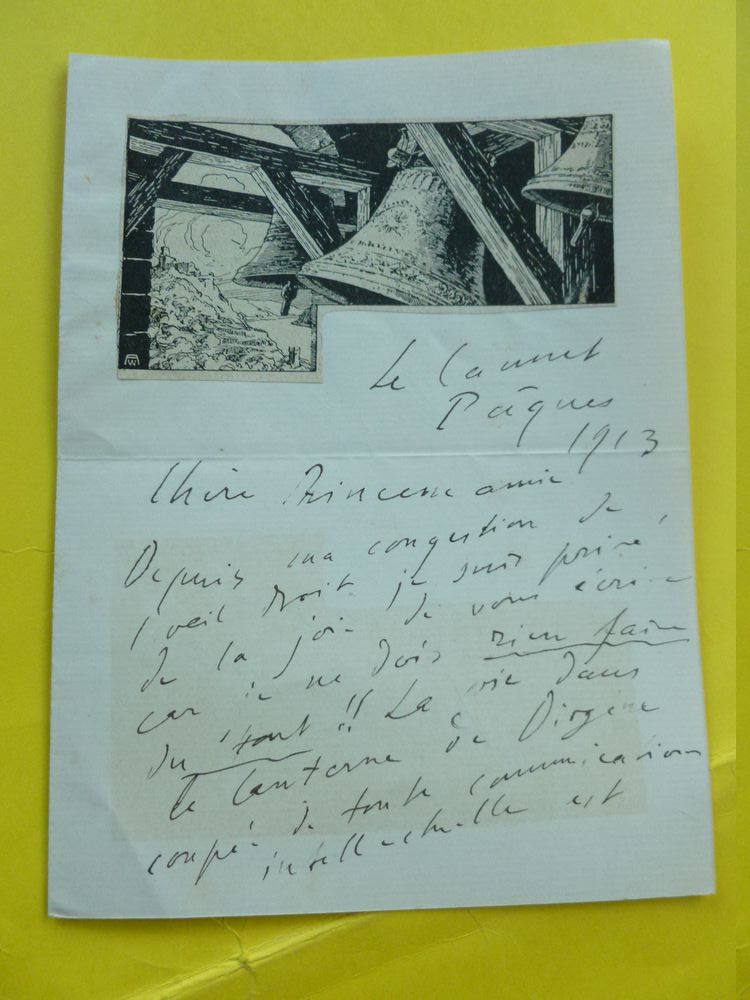 Le Cannet
Pâques
1913
Chère Princesse amie
Depuis ma congestion de
l'oeil droit je suis privé
de la joie de vous écrire
car je ne dois rien faire
du tout !! La vie dans
la lanterne de Diogène
coupé de toute communication
intellectuelle est